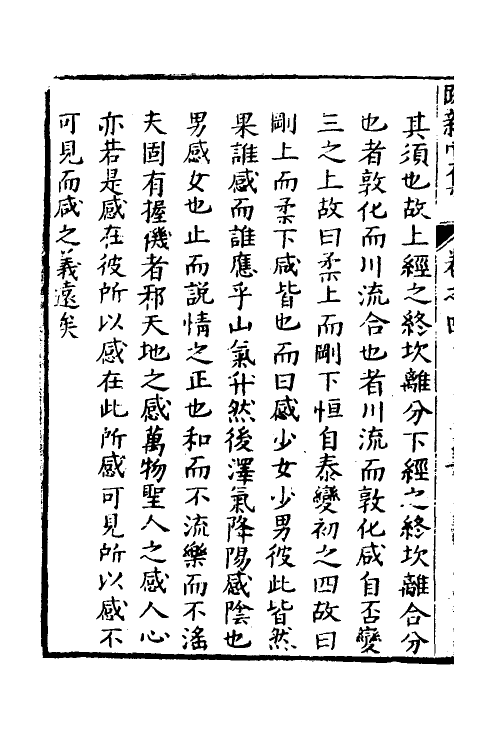 其須也故上經之終坎離分下經之終坎離合分
也者敦化而川流合也者川流而敦化咸自否變
三之上故曰柔上而剛下恒自泰變初之四故曰
剛上而柔下咸皆也而曰感少女少男彼此皆然
果誰感而誰應乎山氣升然後澤氣降陽感陰也
男感女也止而說情之正也和而不流樂而不滛
夫固有握僟者邪天地之感萬物聖人之感人心
亦若是感在彼所以感在此所感可見所以感不
可見而咸之義遠矣